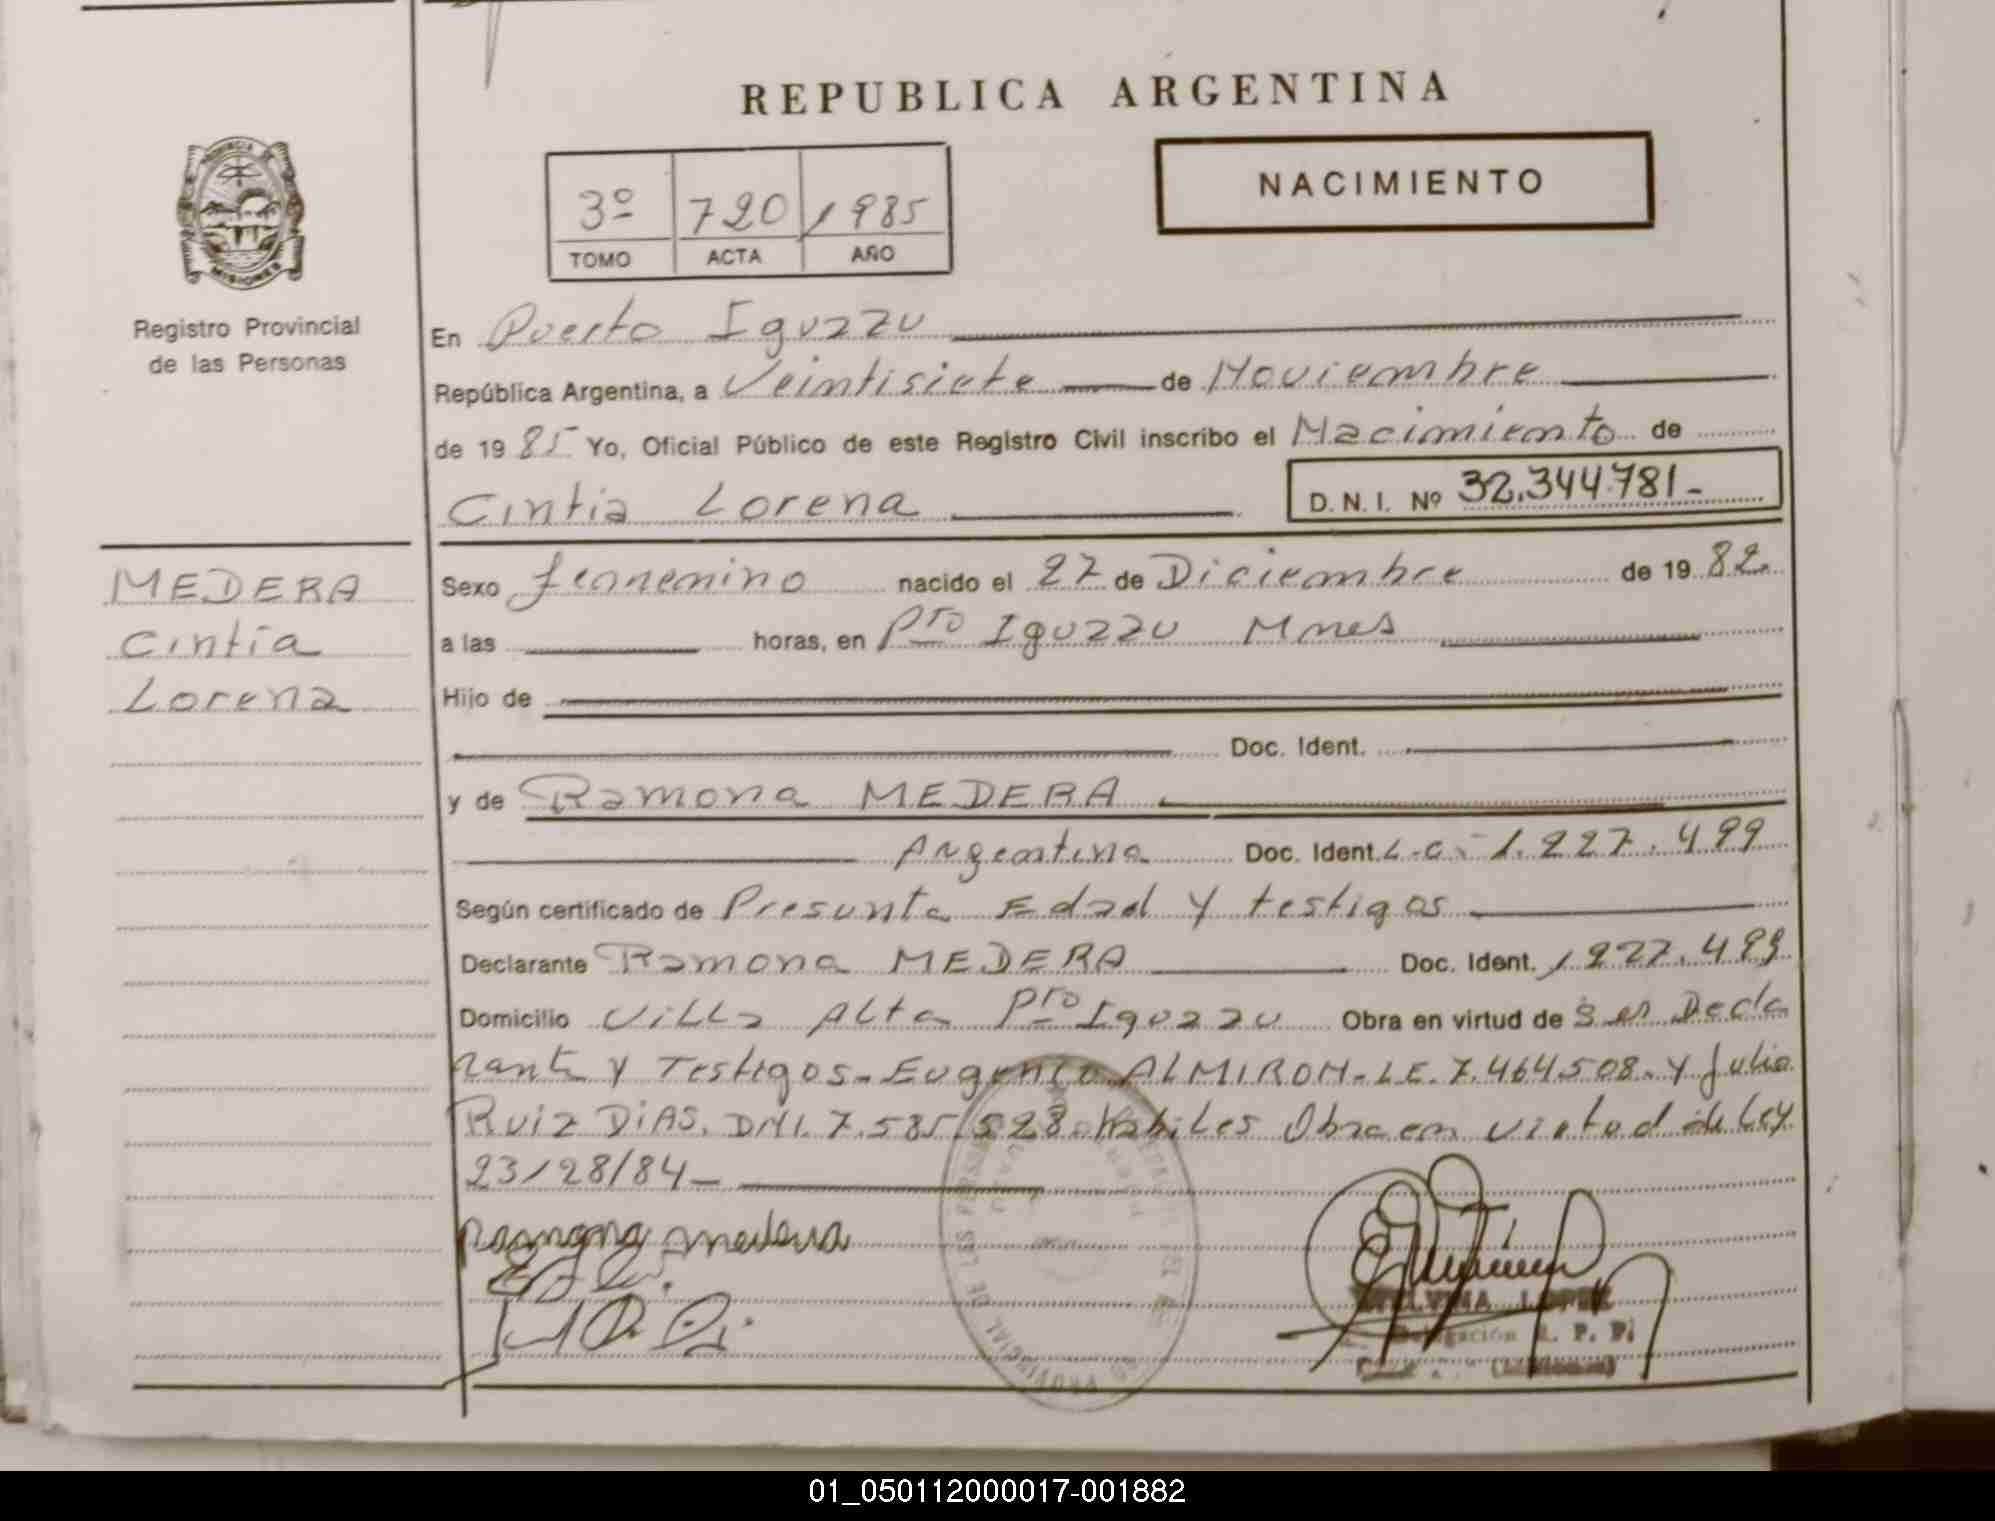 REPUBLICA ARGENTINA
NACIMIENTO
3º 720 1985
TOMO ACTA AÑO
PROVINCIA DE
MISIONES
Registro Provincial
de las Personas
En Puerto Iguazu
República Argentina, a Veintisiete de Noviembre
de 1985 Yo, Oficial Público de este Registro Civil inscribo el Nacimiento de
Cintia Lorena D.N.I. Nº 32.344.781-
MEDERA
Cintia
Lorena
Sexo femenino nacido el 27 de Diciembre de 1982.
a las horas, en Pto Iguazu Mnes
Hijo de
Doc. Ident.
y de Ramona MEDERA
Argentina Doc. Ident. L.C. 1.227.499
Según certificado de Presunta Edad y testigos
Declarante Ramona MEDERA Doc. Ident. 1227.499
Domicilio Villa Alta Pto Iguazu Obra en virtud de Ser Decla
rante y Testigos-Eugenio ALMIRON-LE.7.464.508-y Julio
RUIZ DIAS. DNI.7.585.528. Habiles Obra en virtud de Ley
23/28/84-
Ramona Medera
PROVINCIAL DE LAS PERSONAS
LOPEZ
Delegación R. P. P.
(Misiones)
01_050112000017-001882